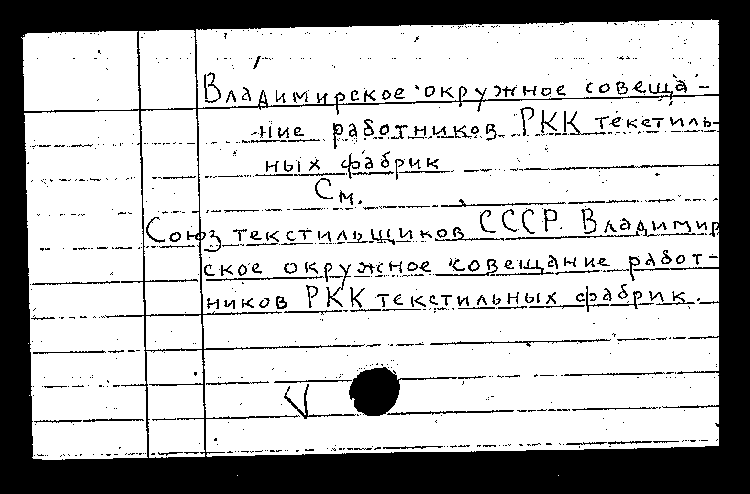 Владимирское окружное совеща-
ние работников РКК текстиль-
ных фабрик
См.
Союз текстильщиков СССР. Владимир
ское окружное совещание работ-
ников РКК текстильных фабрик.
V